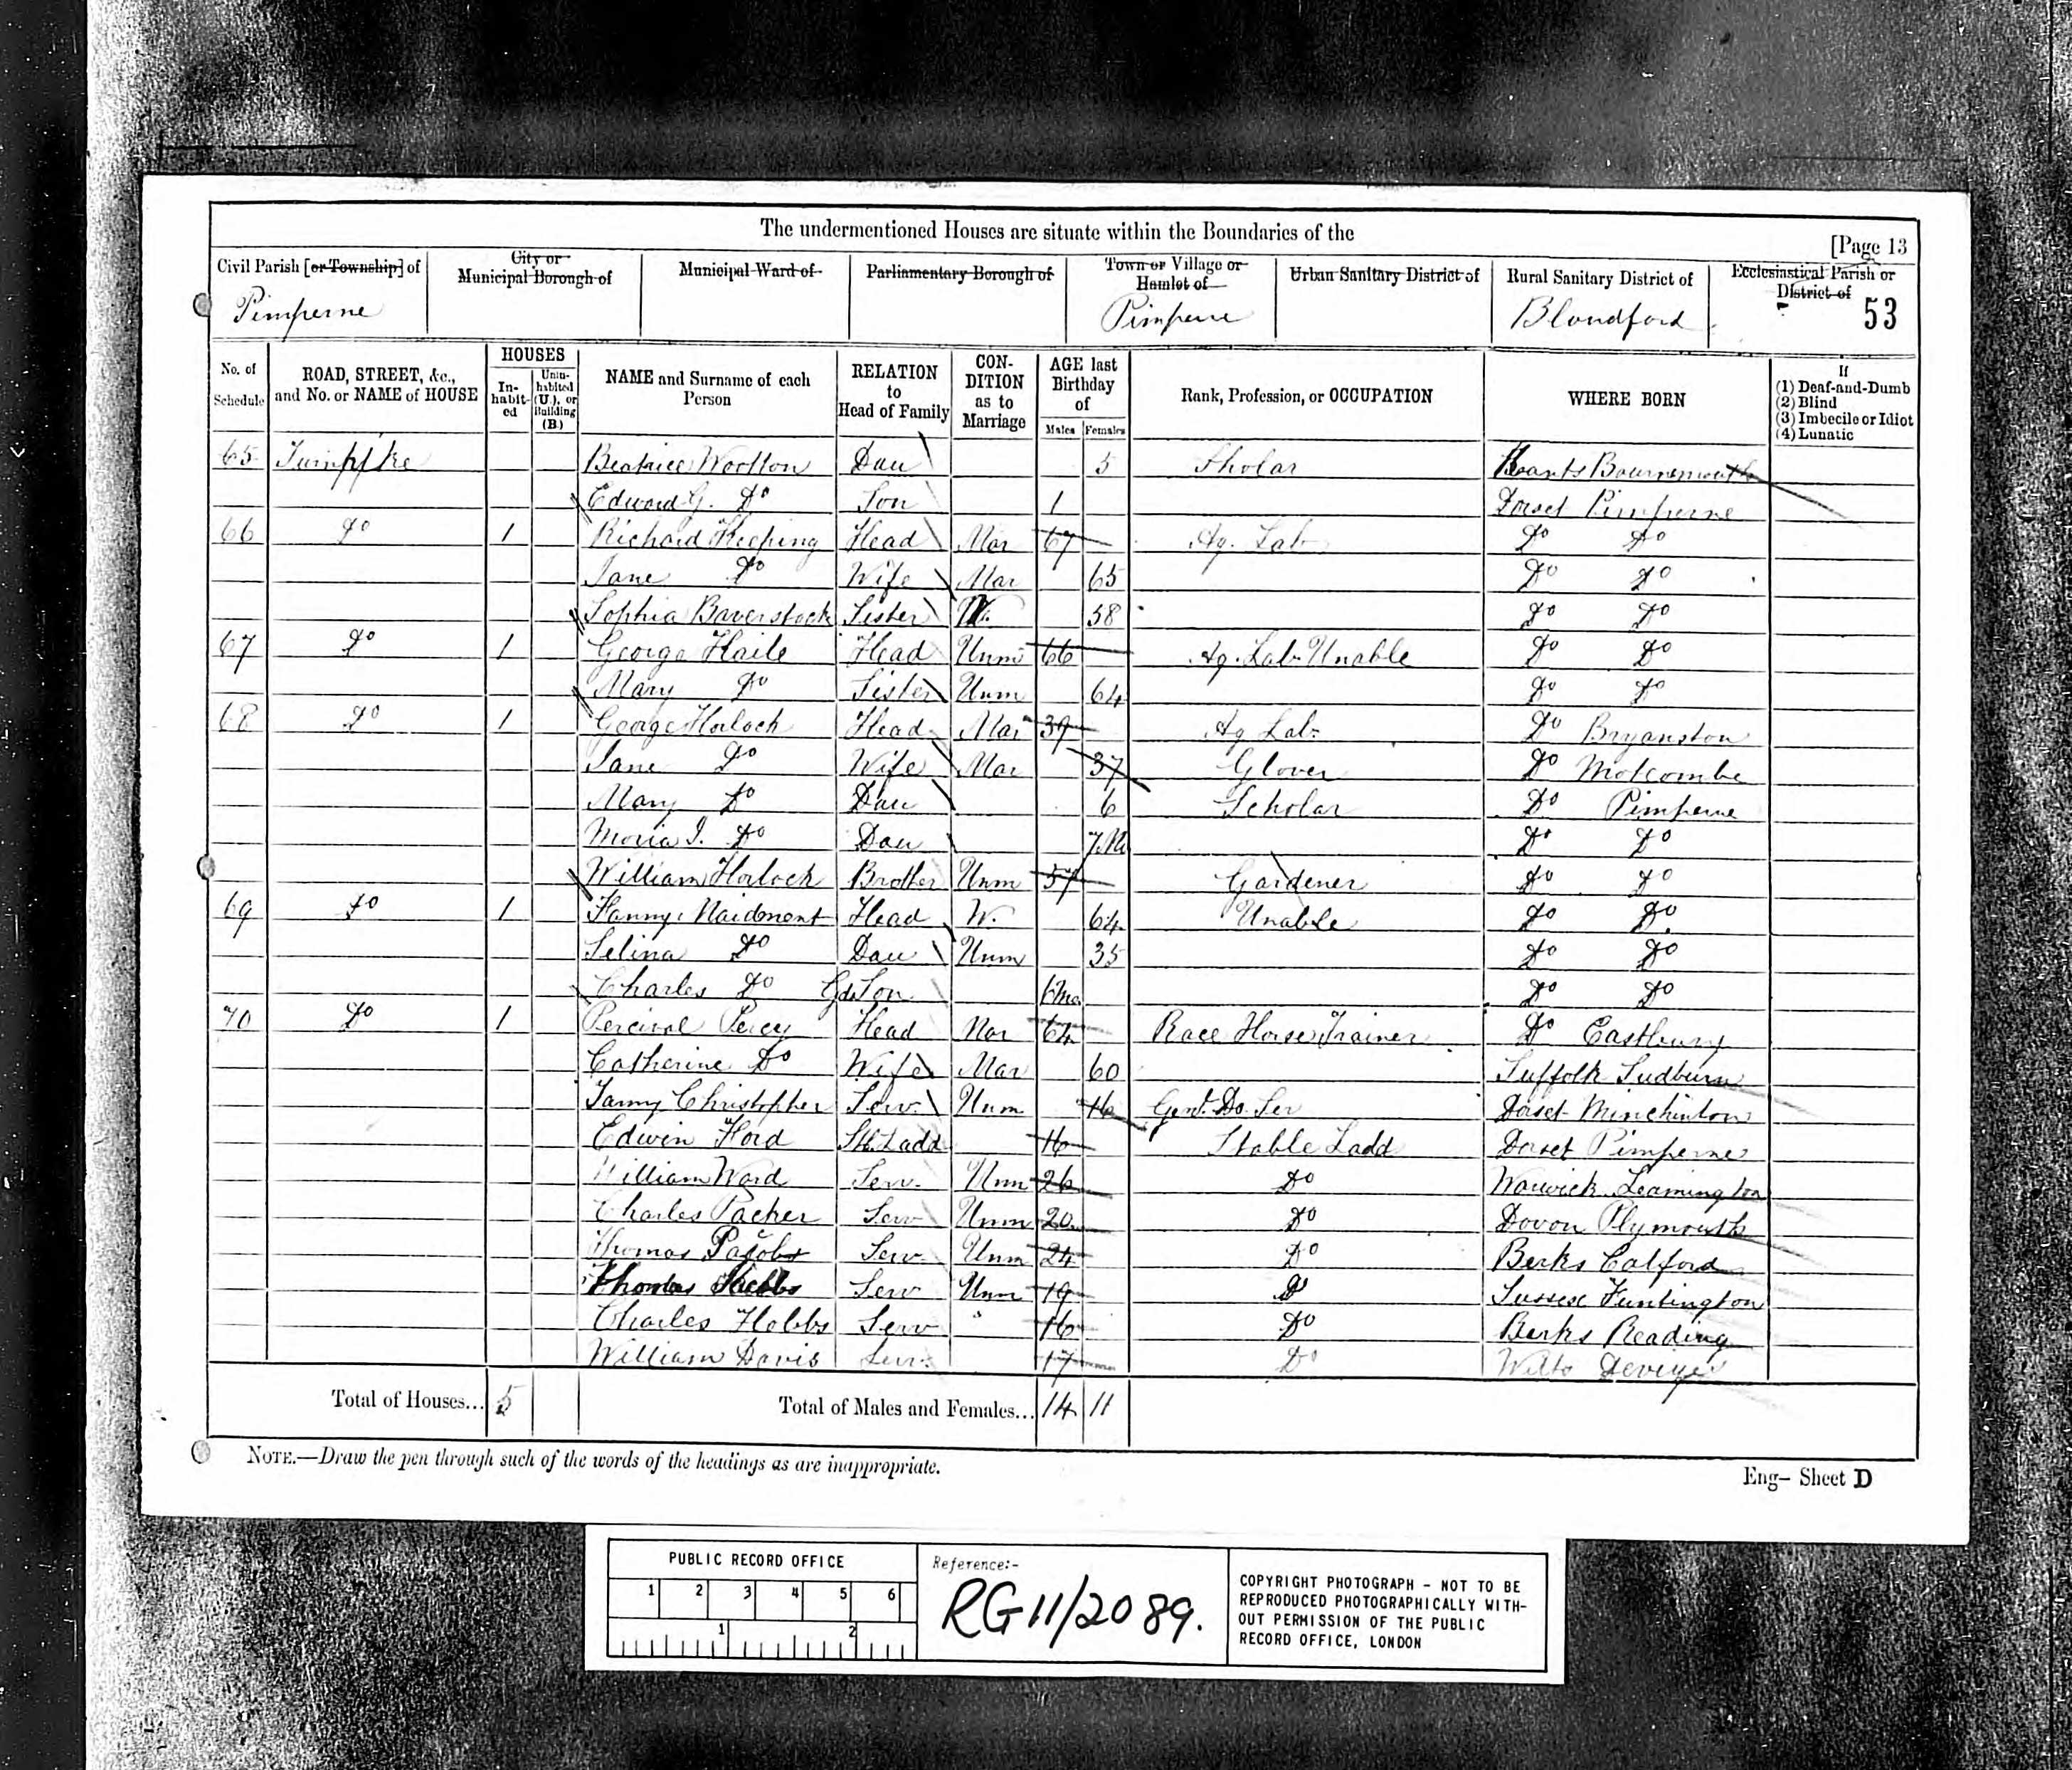 The undermentioned Houses are situate within the Boundaries of the
[Page 13
Civil Parish [or Township] of
City or Municipal Borough of
Municipal Ward of
Parliamentary Borough of
Town or Village or Hamlet of
Urban Sanitary District of
Rural Sanitary District of
Ecclesiastical Parish or District of
Pimperne Pimperne Blandford 53
No. of Schedule
ROAD, STREET, &c., and No. or NAME of HOUSE
HOUSES
In-habit-ed
Unin-habited (U.), or Building (B.)
NAME and Surname of each Person
RELATION to Head of Family
CON-DITION as to Marriage
AGE last Birthday of
Males Females
Rank, Profession, or OCCUPATION
WHERE BORN
If
(1) Deaf-and-Dumb
(2) Blind
(3) Imbecile or Idiot
(4) Lunatic
65 Turnpike Beatrice Woolton Dau 5 Sholar Hants Bournemouth
Edward G. Do Son 1 Dorset Pimperne
66 Do 1 Richard Keeping Head Mar 67 Ag. Lab Do Do
Jane Do Wife Mar 65 Do Do
Sophia Baverstock Sister W. 58 Do Do
67 Do 1 George Haile Head Unm 66 Ag. Lab. Unable Do Do
Mary Do Sister Unm 64 Do Do
68 Do 1 George Horlock Head Mar 39 Ag Lab Do Bryanston
Jane Do Wife Mar 37 Glover Do Motcombe
Mary Do Dau 6 Scholar Do Pimperne
Maria J. Do Dau 7M Do Do
William Horlock Brother Unm 37 Gardener Do Do
69 Do 1 Fanny Maidment Head W. 64 Unable Do Do
Selina Do Dau Unm 35 Do Do
Charles Do Gd Son 6mo Do Do
70 Do 1 Percival Percy Head Mar 64 Race Horse Trainer Do Eastbury
Catherine Do Wife Mar 60 Suffolk Sudburn
Fanny Christopher Serv. Unm 16 Genl. Do. Ser Dorset Minchinton
Edwin Ford St. Ladd 16 Stable Ladd Dorset Pimperne
William Ward Serv. Unm 26 Do Warwick Leamington
Charles Packer Serv Unm 20 Do Devon Plymouth
Thomas Serv. Unm 24 Do Berks
Thomas Serv Unm 19 Do Sussex Funtington
Charles Hobbs Serv " 16 Do Berks Reading
William Davis Serv. 17 Do Wilts Devizes
Total of Houses... 5 Total of Males and Females... 14 11
NOTE.—Draw the pen through such of the words of the headings as are inappropriate.
Eng– Sheet D
PUBLIC RECORD OFFICE
1 2 3 4 5 6
1 2
Reference:-
RG 11/2089.
COPYRIGHT PHOTOGRAPH - NOT TO BE
REPRODUCED PHOTOGRAPHICALLY WITH-
OUT PERMISSION OF THE PUBLIC
RECORD OFFICE, LONDON